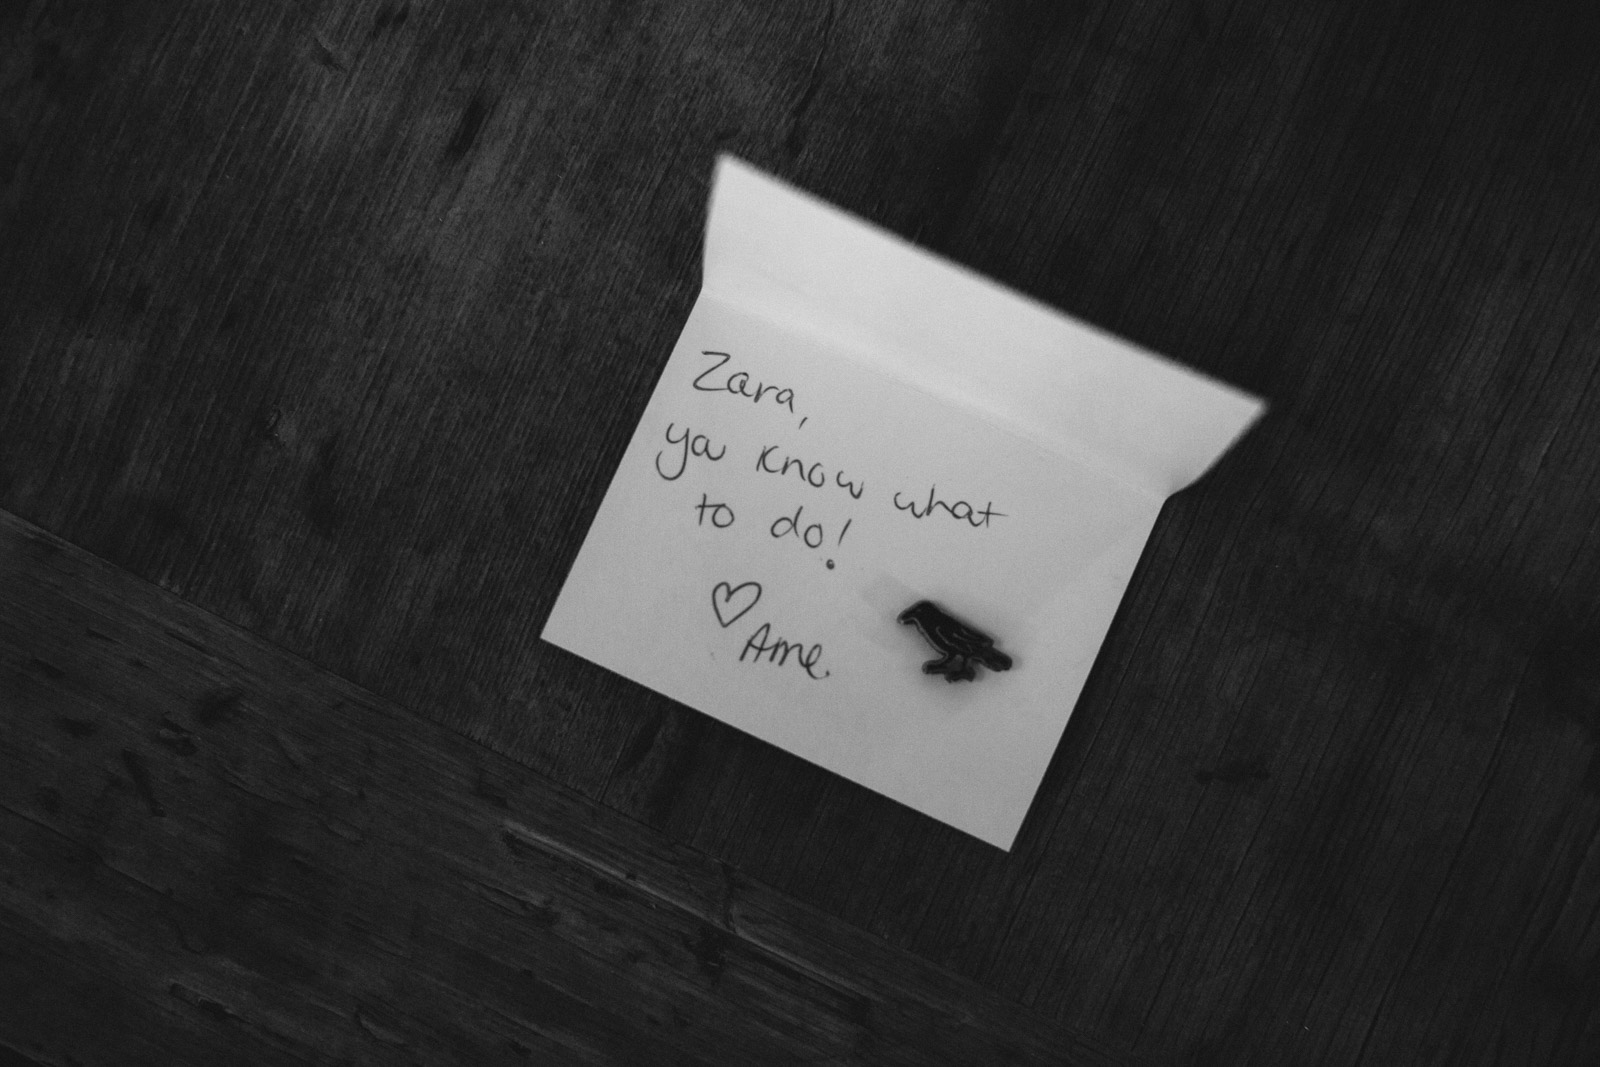 Zara,
you know what
to do!
♡ Ame.